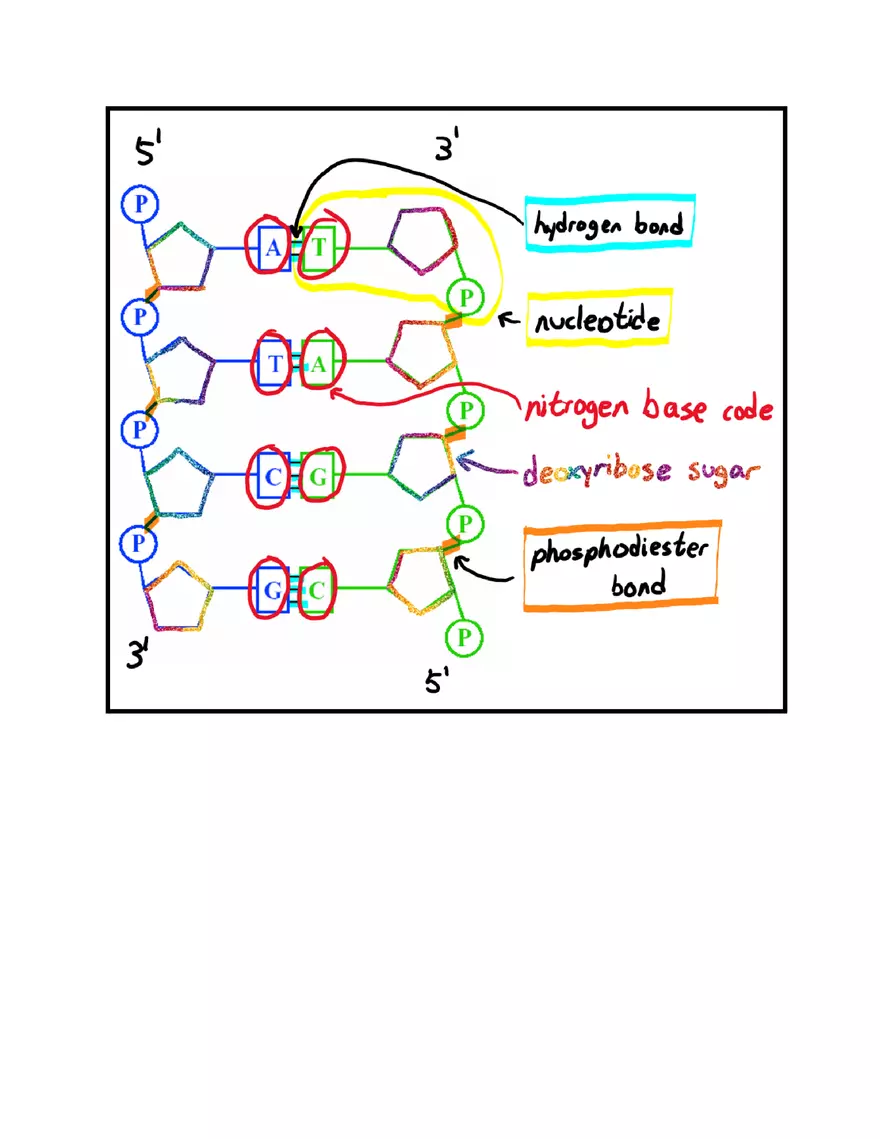 5' 3'
P
hydrogen bond
A T
P
nucleotide
P
T A
nitrogen base code
P
P
C G
deoxyribose sugar
P
phosphodiester
bond
P
G C
P
3'
5'